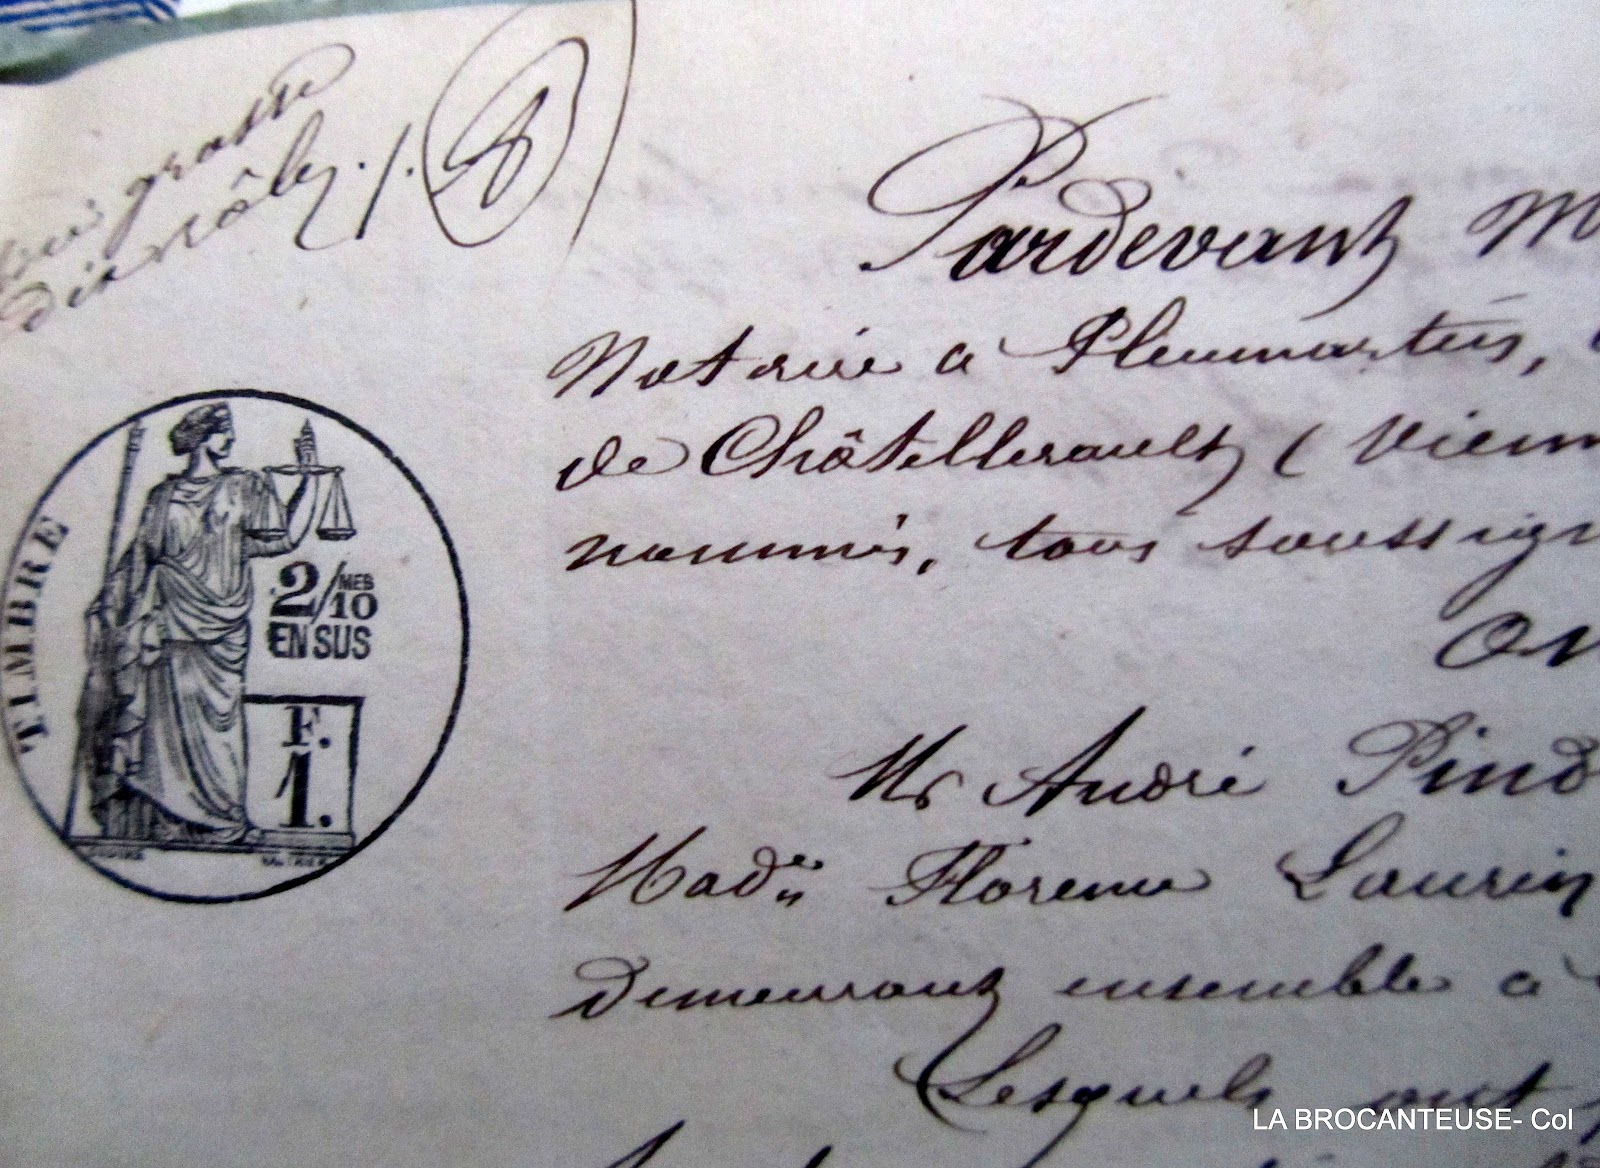 grosse
dix rôles ./.
Pardevant M
Notaire a Pleumartin,
de Châtellerault, ( Vienn
nommés, tous soussign
On
Mr André Pind
Made Florence Laurin
demeurant ensemble a
Lesquels ont
TIMBRE
2/10 MES
EN SUS
F.
1.
LA BROCANTEUSE- Col